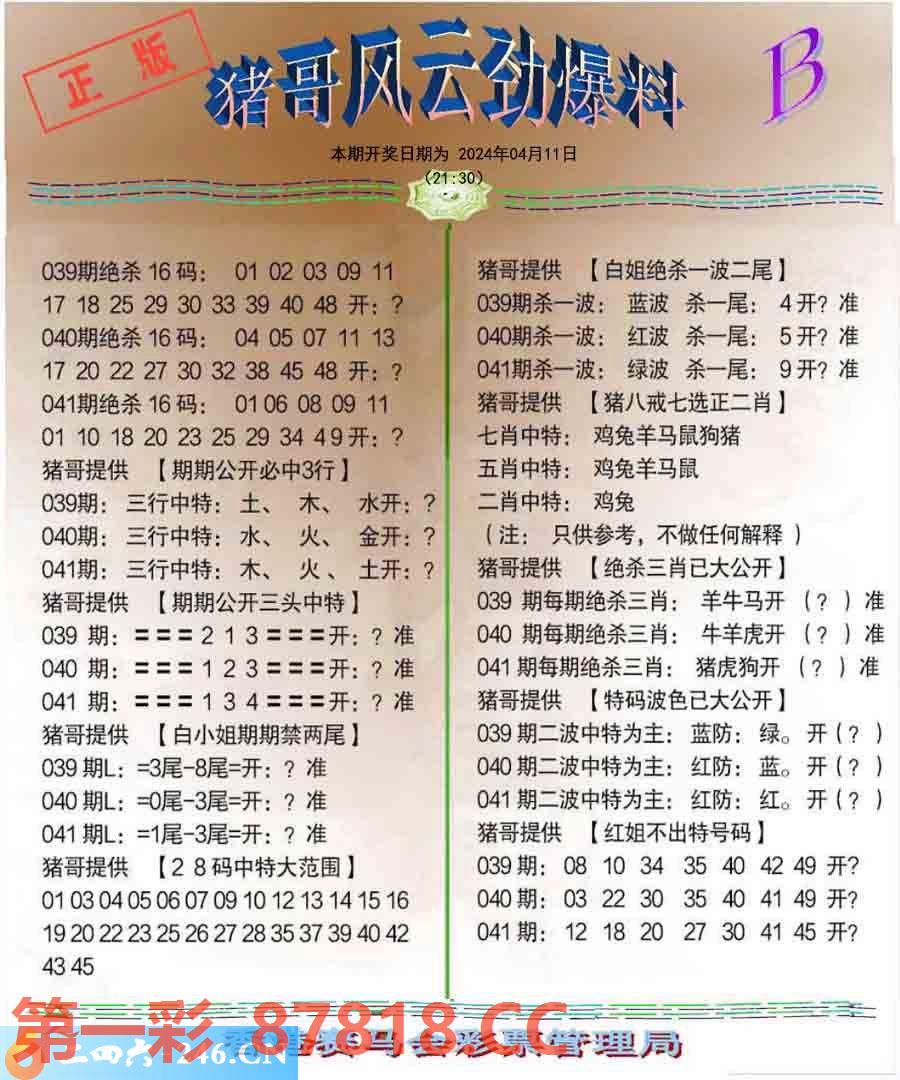 正版
猪哥风云劲爆料
B
本期开奖日期为 2024年04月11日
(21:30)
039期绝杀16码： 01 02 03 09 11
17 18 25 29 30 33 39 40 48 开：?
040期绝杀16码： 04 05 07 11 13
17 20 22 27 30 32 38 45 48 开：?
041期绝杀16码： 01 06 08 09 11
01 10 18 20 23 25 29 34 49开：?
猪哥提供 【期期公开必中3行】
039期：三行中特：土、 木、 水开：?
040期：三行中特：水、 火、 金开：?
041期：三行中特：木、 火、 土开：?
猪哥提供 【期期公开三头中特】
039 期：===213===开：? 准
040 期：===123===开：? 准
041 期：===134===开：? 准
猪哥提供 【白小姐期期禁两尾】
039期L：=3尾-8尾=开：? 准
040期L：=0尾-3尾=开：? 准
041期L：=1尾-3尾=开：? 准
猪哥提供 【28码中特大范围】
01 03 04 05 06 07 09 10 12 13 14 15 16
19 20 22 23 25 26 27 28 35 37 39 40 42
43 45
猪哥提供 【白姐绝杀一波二尾】
039期杀一波： 蓝波 杀一尾： 4开? 准
040期杀一波： 红波 杀一尾： 5开? 准
041期杀一波： 绿波 杀一尾： 9开? 准
猪哥提供 【猪八戒七选正二肖】
七肖中特： 鸡兔羊马鼠狗猪
五肖中特： 鸡兔羊马鼠
二肖中特： 鸡兔
（注： 只供参考，不做任何解释 ）
猪哥提供 【绝杀三肖已大公开】
039 期每期绝杀三肖： 羊牛马开 （? ）准
040 期每期绝杀三肖： 牛羊虎开 （? ）准
041期每期绝杀三肖： 猪虎狗开 （? ）准
猪哥提供 【特码波色已大公开】
039期二波中特为主： 蓝防： 绿。 开（? ）
040期二波中特为主： 红防： 蓝。 开（? ）
041期二波中特为主： 红防： 红。 开（? ）
猪哥提供 【红姐不出特号码】
039期： 08 10 34 35 40 42 49 开?
040期： 03 22 30 35 40 41 49 开?
041期： 12 18 20 27 30 41 45 开?
第一彩 87818.CC
二四六 246.CN
香港赛马会彩票管理局